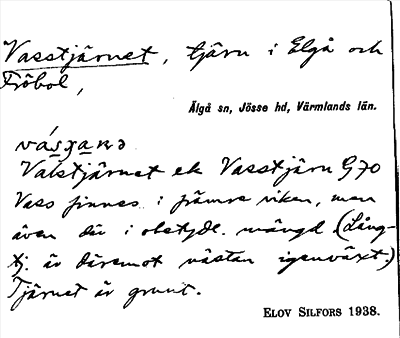 Vasstjärnet, tjärn i Elgå och
Fröbol,
Älgå sn, Jösse hd, Värmlands län.
Valstjärnet ek Vasstjärn G70
Vass finnes i främre viken, men
även där i obetydl. mängd. (Lång-
tj. är däremot nästan igenväxt.)
Tjärnet är grunt.
ELOV SILFORS 1938.